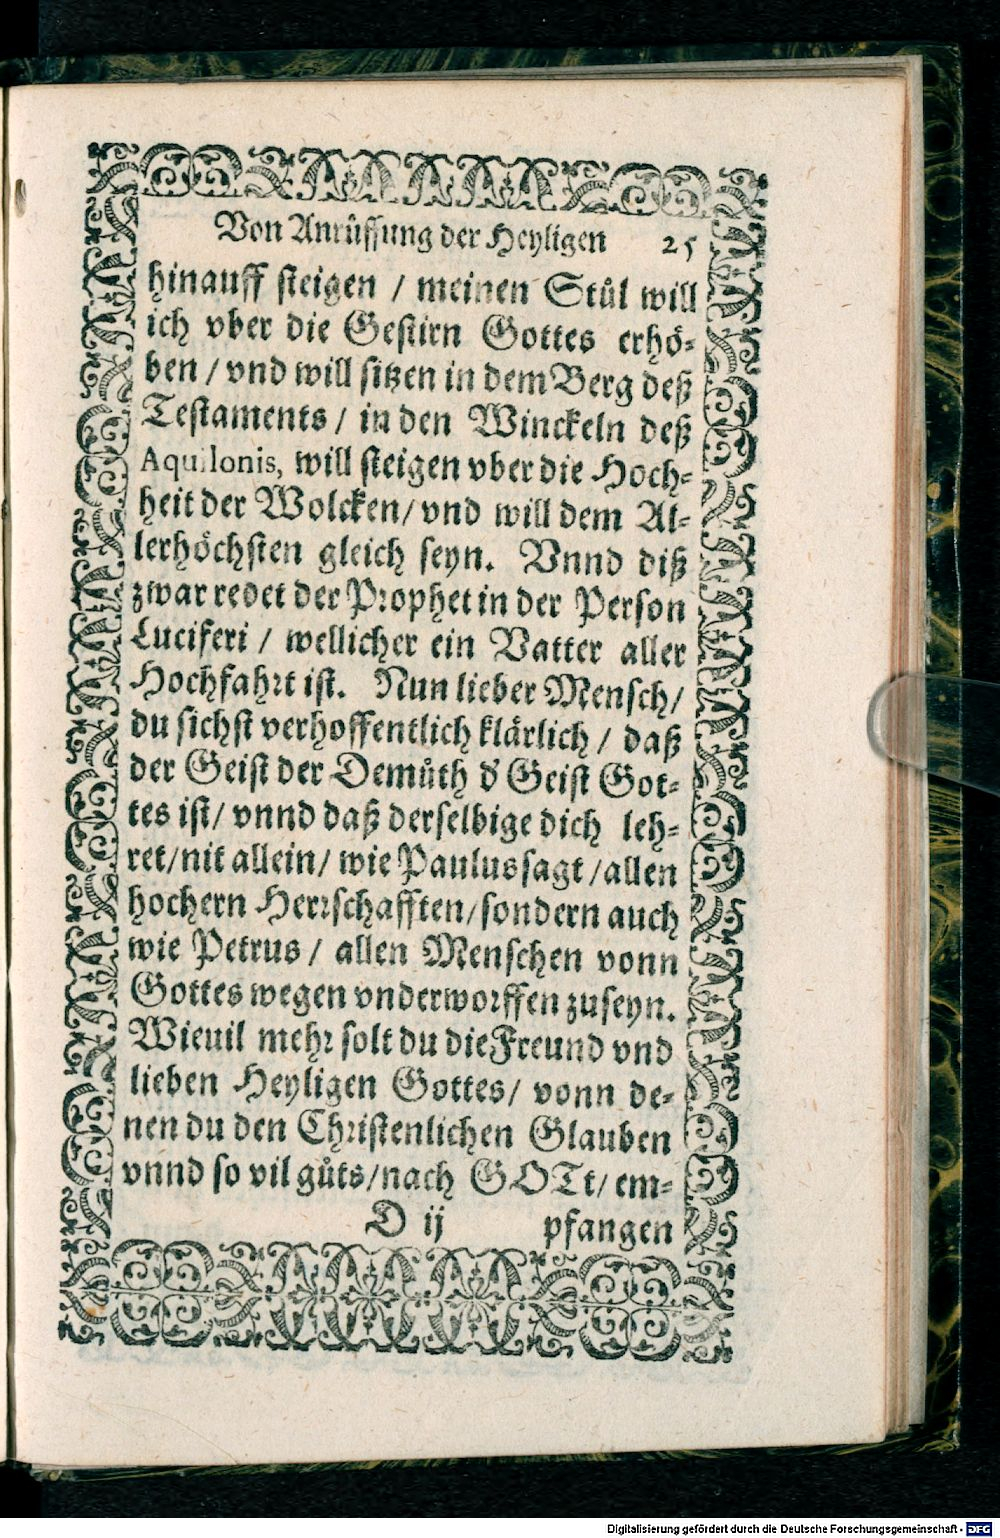 Von Anrůffung der Heyligen 25
hinauff steigen / meinen Stůl will
ich vber die Gestirn Gottes erhö-
ben / vnd will sitzen in dem Berg deß
Testaments / in den Winckeln deß
Aquilonis, will steigen vber die Hoch-
heit der Wolcken / vnd will dem Al-
lerhöchsten gleich seyn. Vnnd diß
zwar redet der Prophet in der Person
Luciferi / wellicher ein Vatter aller
Hochfahrt ist. Nun lieber Mensch /
du sichst verhoffentlich klärlich / daß
der Geist der Demůth d' Geist Got-
tes ist / vnnd daß derselbige dich leh-
ret / nit allein / wie Paulus sagt / allen
hochern Herrschafften / sondern auch
wie Petrus / allen Menschen vonn
Gottes wegen vnderworffen zuseyn.
Wieuil mehr solt du die Freund vnd
lieben Heyligen Gottes / vonn de-
nen du den Christenlichen Glauben
vnnd so vil gůts / nach GOTt / em-
D ij pfangen
Digitalisierung gefördert durch die Deutsche Forschungsgemeinschaft - DFG